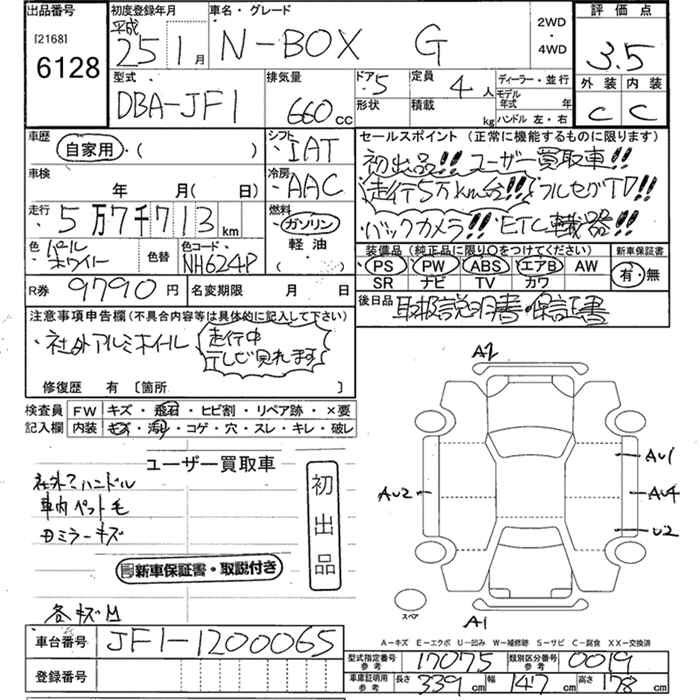 出品番号
[2168]
6128
初度登録年月
平成
25年 1月
車名・グレード
N-BOX G
2WD
・
4WD
評価点
3.5
外装 内装
C C
型式
DBA-JF1
排気量
660cc
ドア・5
形状
定員 4人
積載 kg
ディーラー・並行
モデル年式 年
ハンドル 左・右
車歴
自家用・( )
車検
年 月(日 )
走行
5万7千713km
色 パール
ホワイト
色替
色コード・
NH624P
シフト
・IAT
冷房
・AAC
燃料
ガソリン
軽油
・( )
セールスポイント(正常に機能するものに限ります)
初出品!! ユーザー買取車!!
走行5万km台!! フルセグTV!!
バックカメラ!! ETC載器!!
装備品(純正品に限り○をつけてください)
PS PW ABS エアB AW
SR ナビ TV カワ
新車保証書
有・無
R券 9790円
名変期限 月 日
後日品
取扱説明書・保証書
注意事項申告欄(不具合内容等は具体的に記入して下さい)
・社外アルミホイール
走行中
テレビ見れます
修復歴 有〔箇所 〕
検査員
記入欄
FW キズ・飛石・ヒビ割・リペア跡・×要
内装 キズ・汚れ・コゲ・穴・スレ・キレ・破レ
ユーザー買取車
社外ハンドル
車内ペット毛
ミラーキズ
初出品
新車保証書・取説付き
各キズ
A2
AU1
AU2
AU4
U2
スペア
A1
A-キズ E-エクボ U-凹み W-補修跡 S-サビ C-腐食 XX-交換済
車台番号 JF1-1200065
登録番号
型式指定番号
参考
17075
類別区分番号
参考
0019
車庫証明用
参考
長さ 339cm 幅 147cm 高さ 178cm